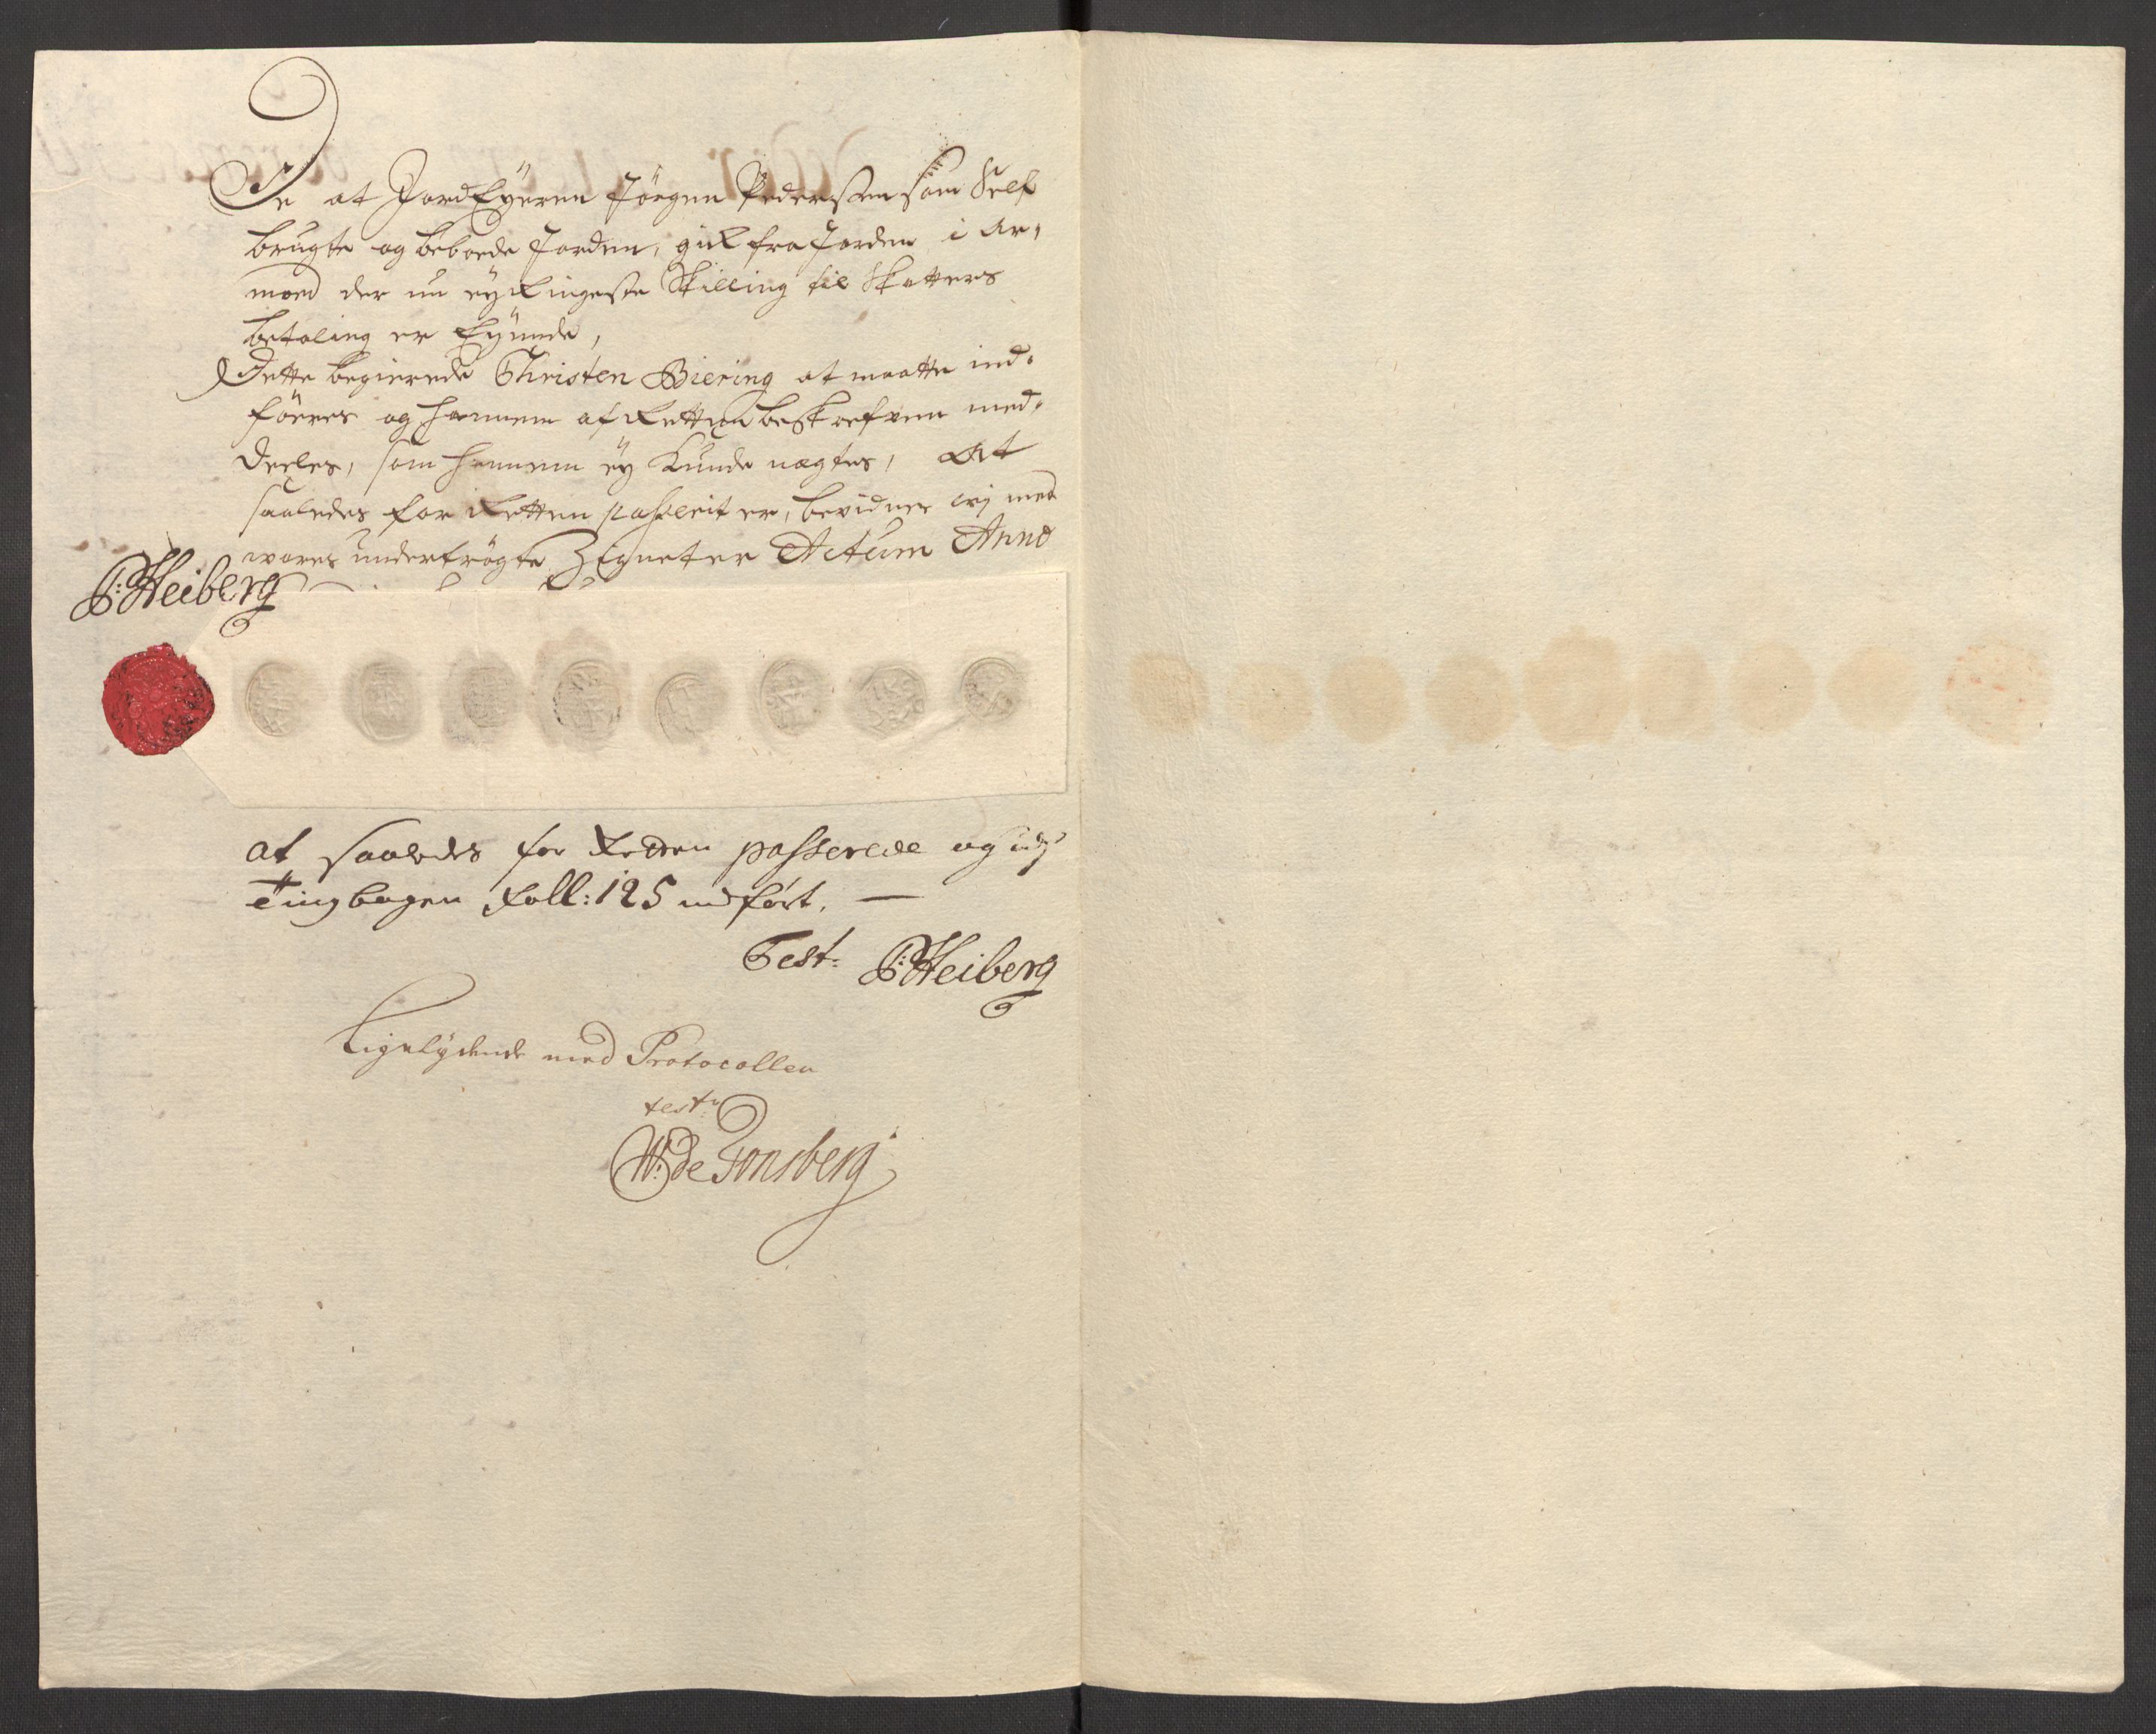 Je at JordEyeren Jörgen Pedersen som Self
brugte og beboede Jorden, gik fra Jorden i Ar,
moed der nu ey Ringeste Skilling til Skatters
betaling er Eyende,
Dette begierede Christen Biering at maatte ind-
föeres og hannem af Retten beskrefven med-
deeles, som hannem ey Kunde nægtes, At
saaledes for Retten passerit er, bevidner wj med
wores undertrögte Zigneter Actum Anno
P: Heiberg
at saaledes for Retten passerede og udj
Tingbogen Foll: 125 indfört. —
Test: P: Heiberg
Ligelydende med Protocollen
test:
W: de Tonsberg